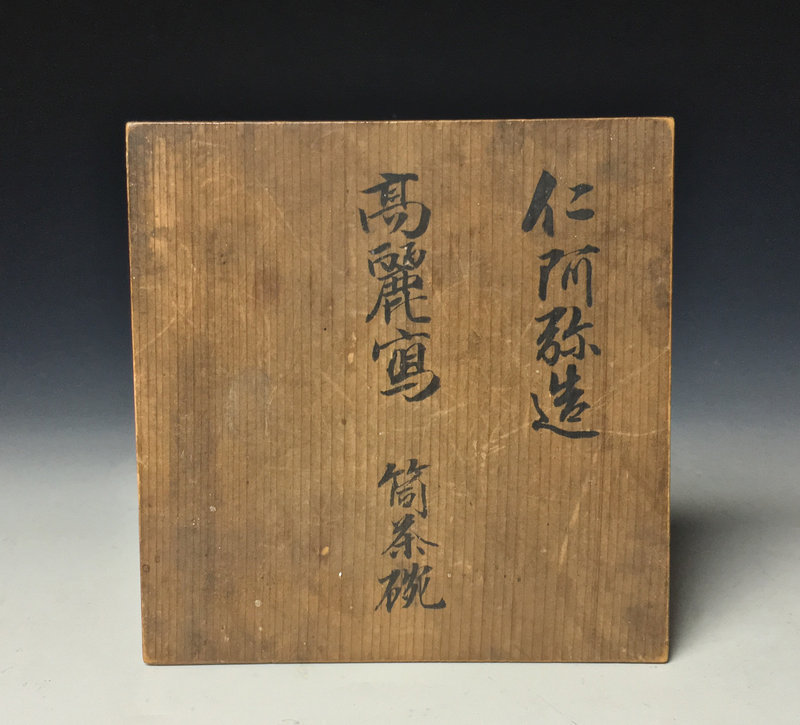 仁阿弥造
高麗寫 筒茶碗